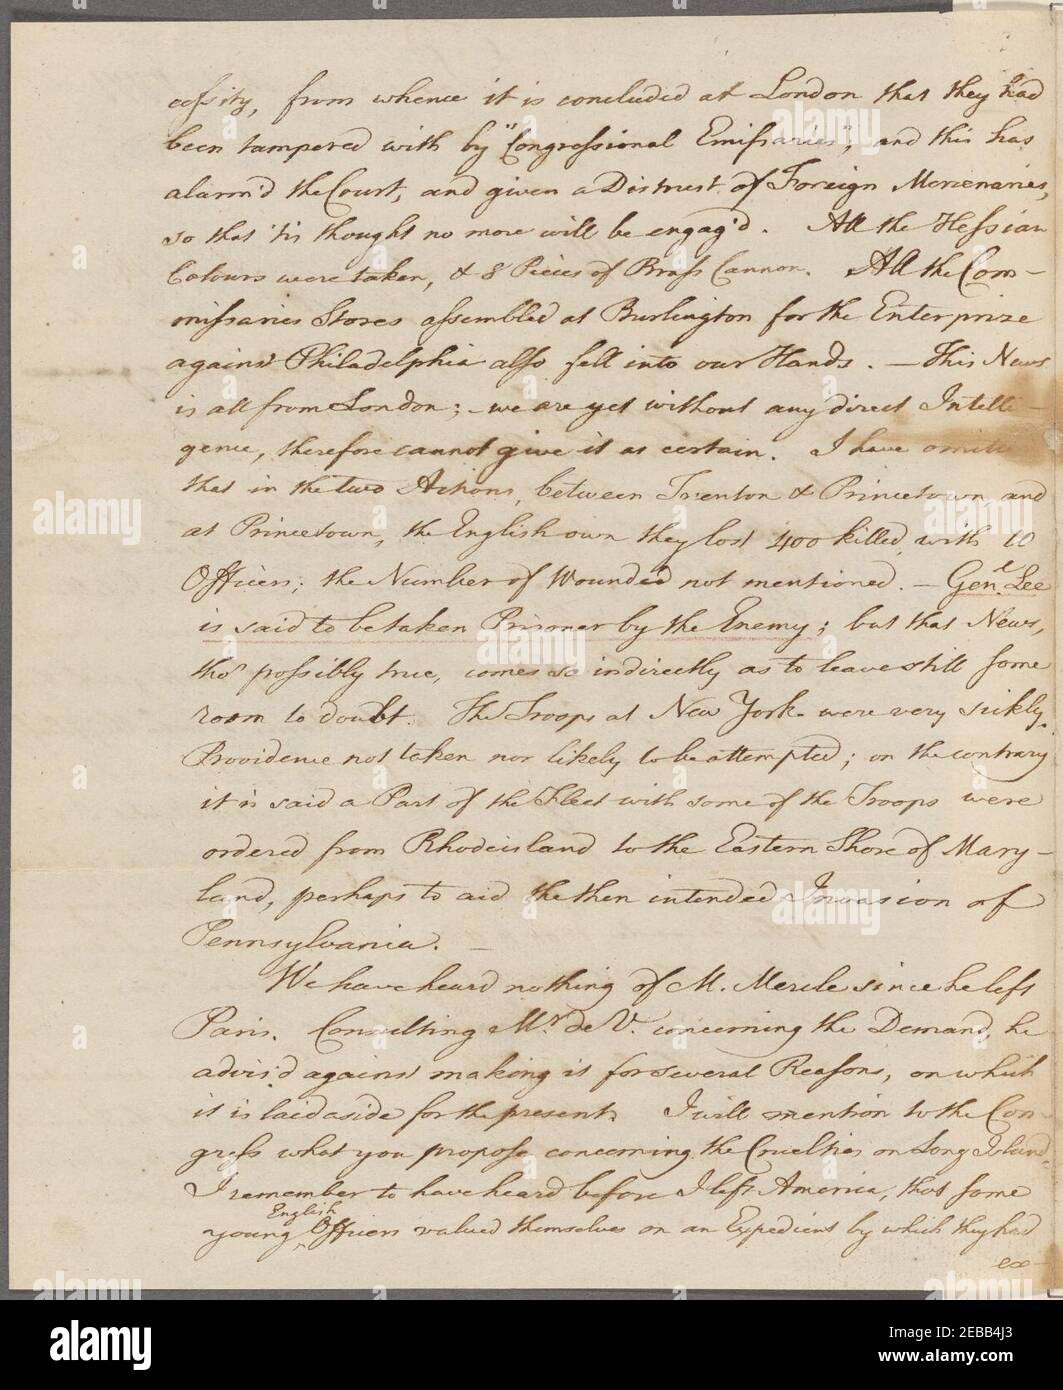 cessity, from whence it is concluded at London that they had
been tampered with by "Congressional Emissaries", and this has
alarm'd the Court, and given a Distrust of Foreign Mercenaries,
so that 'tis thought no more will be engag'd. All the Hessian
Colours were taken, & 8 Pieces of Brass Cannon. All the Com-
missaries Stores assembled at Burlington for the Enterprize
against Philadelphia also fell into our Hands. — This News
is all from London; - we are yet without any direct Intelli-
gence, therefore cannot give it as certain. I have omitted
that in the two Actions, between Trenton & Princetown, and
at Princetown, the English own they lost 400 killed, with 10
Officers; the Number of Wounded not mentioned. — Genl. Lee
is said to be taken Prisoner by the Enemy; but that News,
tho' possibly true, comes so indirectly as to leave still some
room to doubt. The Troops at New York were very sickly.
Providence not taken nor likely to be attempted; on the contrary
it is said a Part of the Fleet with some of the Troops were
ordered from Rhodeisland to the Eastern Shore of Mary-
land, perhaps to aid the then intended Invasion of
Pennsylvania. —
We have heard nothing of M. Merele since he left
Paris. Consulting Mr. de V. concerning the Demand, he
advis'd against making it for several Reasons, on which
it is laid aside for the present. I will mention to the Con-
gress what you propose concerning the Cruelties on Long Island.
I remember to have heard before I left America, that some
young English Officers valued themselves on an Expedient by which they had
ex-
alamy
alamy
Image ID: 2EBB4J3
www.alamy.com